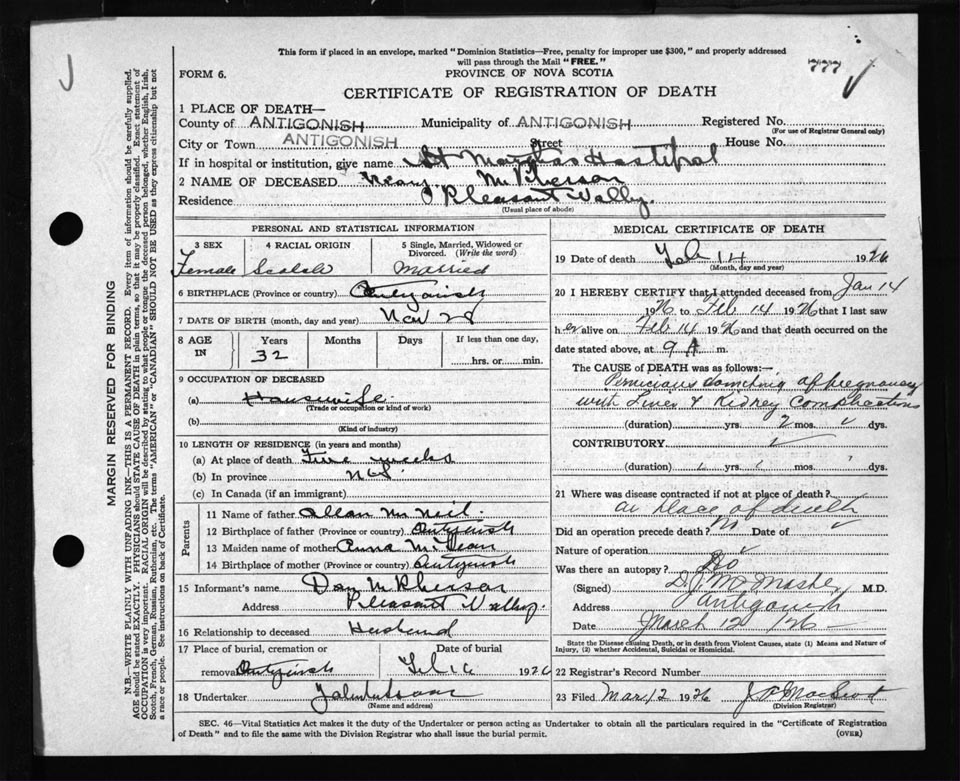 This form if placed in an envelope, marked "Dominion Statistics—Free, penalty for improper use $300," and properly addressed
will pass through the Mail "FREE."
FORM 6.
PROVINCE OF NOVA SCOTIA
777
CERTIFICATE OF REGISTRATION OF DEATH
MARGIN RESERVED FOR BINDING
N.B.—WRITE PLAINLY WITH UNFADING INK—THIS IS A PERMANENT RECORD. Every item of information should be carefully supplied.
AGE should be stated EXACTLY. PHYSICIANS should STATE CAUSE OF DEATH in plain terms, so that it may be properly classified. Exact statement of
OCCUPATION is very important. RACIAL ORIGIN will be described by stating to what people or tongue the deceased person belonged, whether English, Irish,
Scotch, French, German, Russian, Ruthenian, etc. The terms "AMERICAN" or "CANADIAN" SHOULD NOT BE USED as they express citizenship but not
a race or people. See instructions on back of Certificate.
1 PLACE OF DEATH—
County of ANTIGONISH Municipality of ANTIGONISH Registered No.
(For use of Registrar General only)
City or Town ANTIGONISH Street House No.
If in hospital or institution, give name St Marthas Hospital
2 NAME OF DECEASED Mary McPherson
Residence Pleasant Valley.
(Usual place of abode)
PERSONAL AND STATISTICAL INFORMATION
3 SEX 4 RACIAL ORIGIN 5 Single, Married, Widowed or
Divorced. (Write the word)
Female Scotch Married
6 BIRTHPLACE (Province or country) Antigonish
7 DATE OF BIRTH (month, day and year) Nov 28
8 AGE IN Years Months Days If less than one day,
32 hrs. or min.
9 OCCUPATION OF DECEASED
(a) Housewife
(Trade or occupation or kind of work)
(b)
(Kind of industry)
10 LENGTH OF RESIDENCE (in years and months)
(a) At place of death weeks
(b) In province
(c) In Canada (if an immigrant)
Parents
11 Name of father Allan McNeil.
12 Birthplace of father (Province or country) Antigonish
13 Maiden name of mother Anna
14 Birthplace of mother (Province or country) Antigonish
15 Informant's name Dan McPherson
Address Pleasant Valley.
16 Relationship to deceased Husband
17 Place of burial, cremation or Date of burial
removal Antigonish Feb 16 1926
18 Undertaker
(Name and address)
MEDICAL CERTIFICATE OF DEATH
19 Date of death Feb 14 1926
(Month, day and year)
20 I HEREBY CERTIFY that I attended deceased from Jan 14
1926 to Feb 14 1926 that I last saw
her alive on Feb 14 1926 and that death occurred on the
date stated above, at 9 A m.
The CAUSE of DEATH was as follows:—
Pernicious vomiting of pregnancy
with Liver & Kidney Complications
(duration) yrs. 2 mos. dys.
CONTRIBUTORY
(duration) yrs. mos. dys.
21 Where was disease contracted if not at place of death?
at place of death
Did an operation precede death? No Date of
Nature of operation
Was there an autopsy? No
(Signed) M.D.
Address Antigonish
Date March 12 /26
State the Disease causing Death, or in death from Violent Causes, state (1) Means and Nature of
Injury, (2) whether Accidental, Suicidal or Homicidal.
22 Registrar's Record Number
23 Filed Mar 12 1926
(Division Registrar)
SEC. 46—Vital Statistics Act makes it the duty of the Undertaker or person acting as Undertaker to obtain all the particulars required in the "Certificate of Registration
of Death" and to file the same with the Division Registrar who shall issue the burial permit.
(OVER)